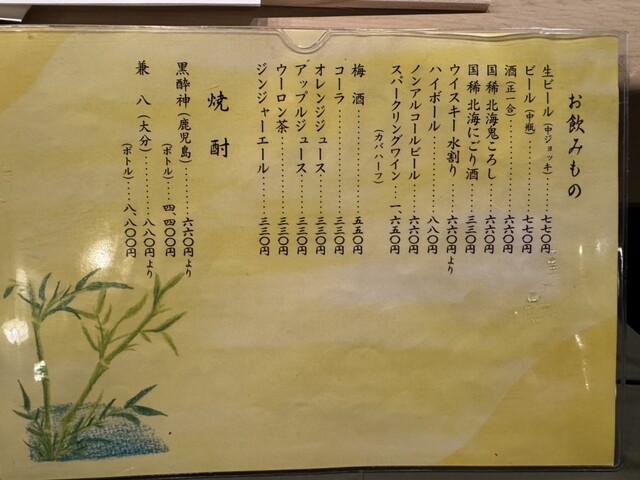 お飲みもの
生ビール（中ジョッキ）‥‥七七〇円
ビール（中瓶）‥‥‥‥七七〇円
酒（正一合）‥‥‥‥‥六六〇円
国稀 北海鬼ころし‥‥六六〇円
国稀 北海にごり酒‥‥三三〇円
ウイスキー水割り‥‥六六〇円より
ハイボール‥‥‥‥八八〇円
ノンアルコールビール‥‥六六〇円
スパークリングワイン‥‥一、六五〇円
（カバハーフ）
梅酒‥‥‥‥‥五五〇円
コーラ‥‥‥‥‥三三〇円
オレンジジュース‥‥‥三三〇円
アップルジュース‥‥‥三三〇円
ウーロン茶‥‥‥‥三三〇円
ジンジャーエール‥‥‥三三〇円
焼酎
黒酔神（鹿児島）‥‥‥六六〇円より
（ボトル）‥‥四、四〇〇円
兼八（大分）‥‥‥‥八八〇円より
（ボトル）‥‥‥八、八〇〇円